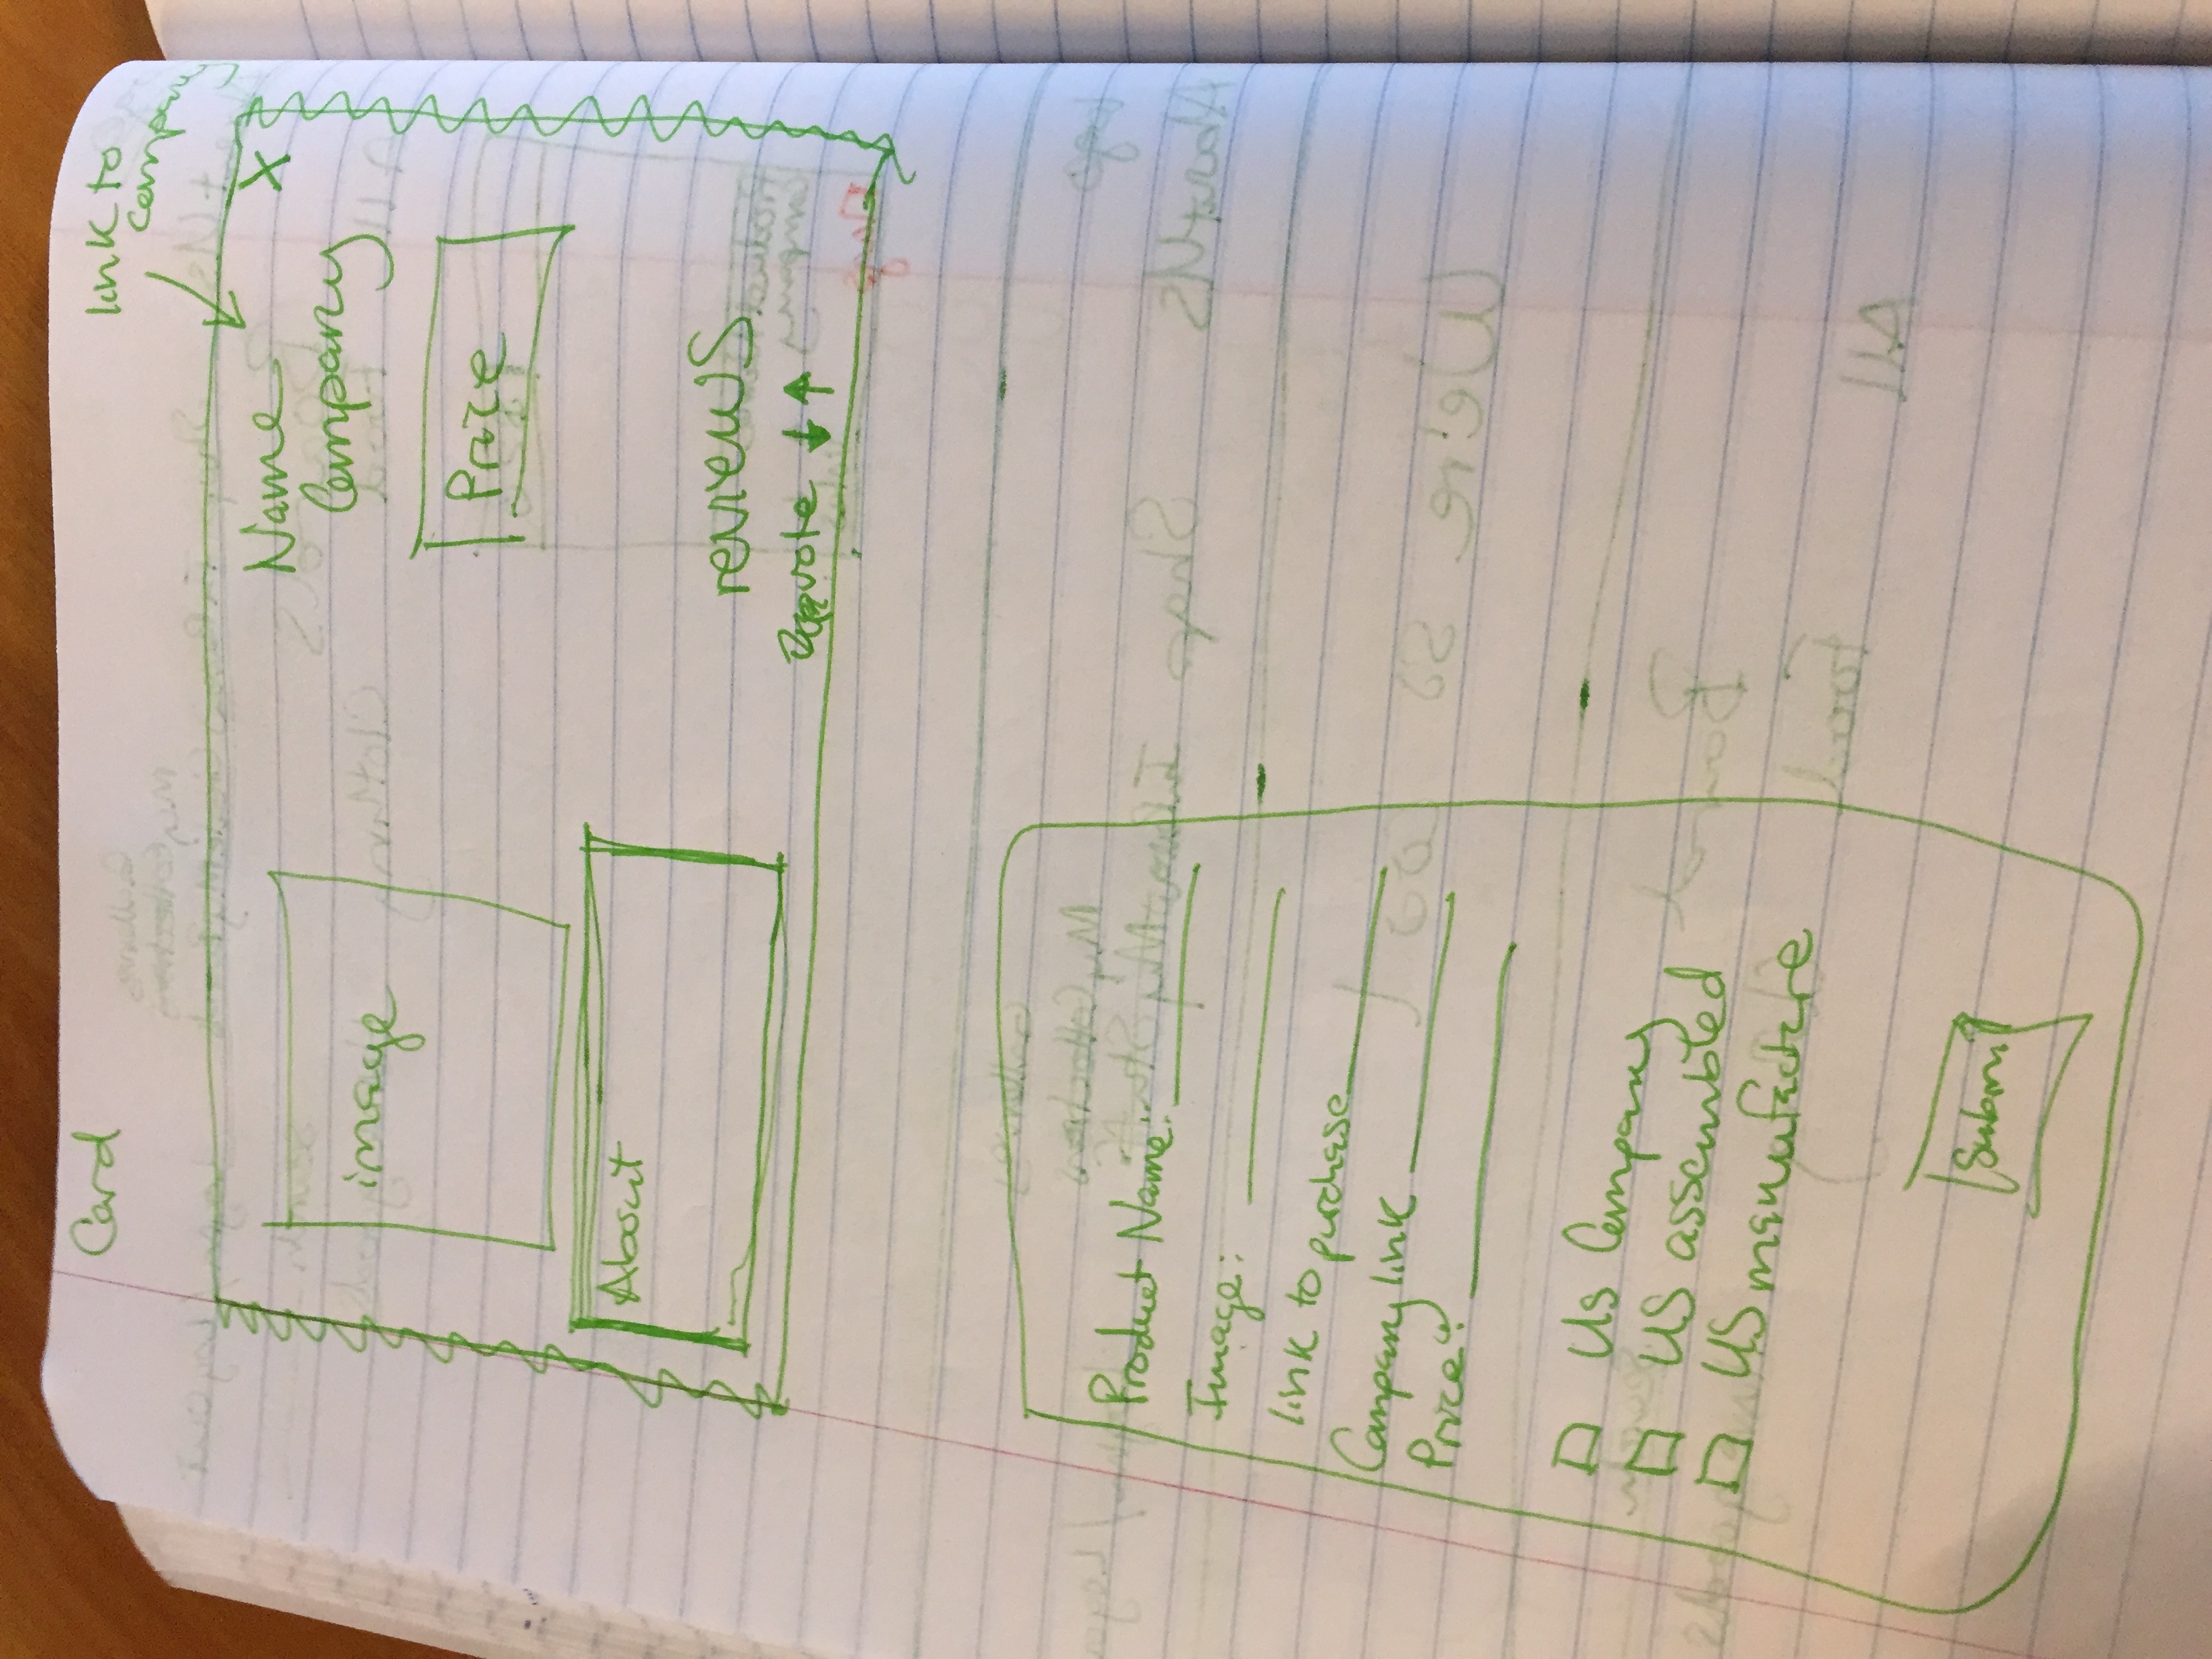 Card
link to
company
Name
X
Company
image
Price
About
reviews
vote ↓↑
Product Name:
Image:
link to purchase
Company link
Price:
US Company
US assembled
US manufacture
Submit